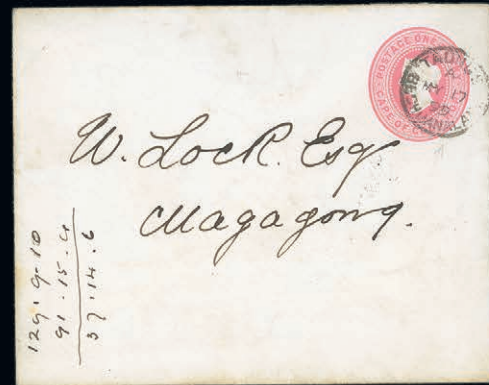 POSTAGE ONE
CAPE OF
TAUNGS
W. Lock. Esq
Magagong.
129.9.10
91.15.4
37.14.6